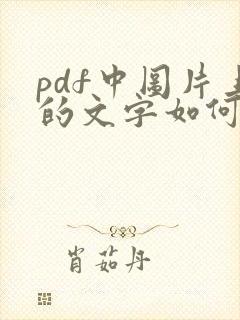 pdf中图片
的文字如何
肖茹丹